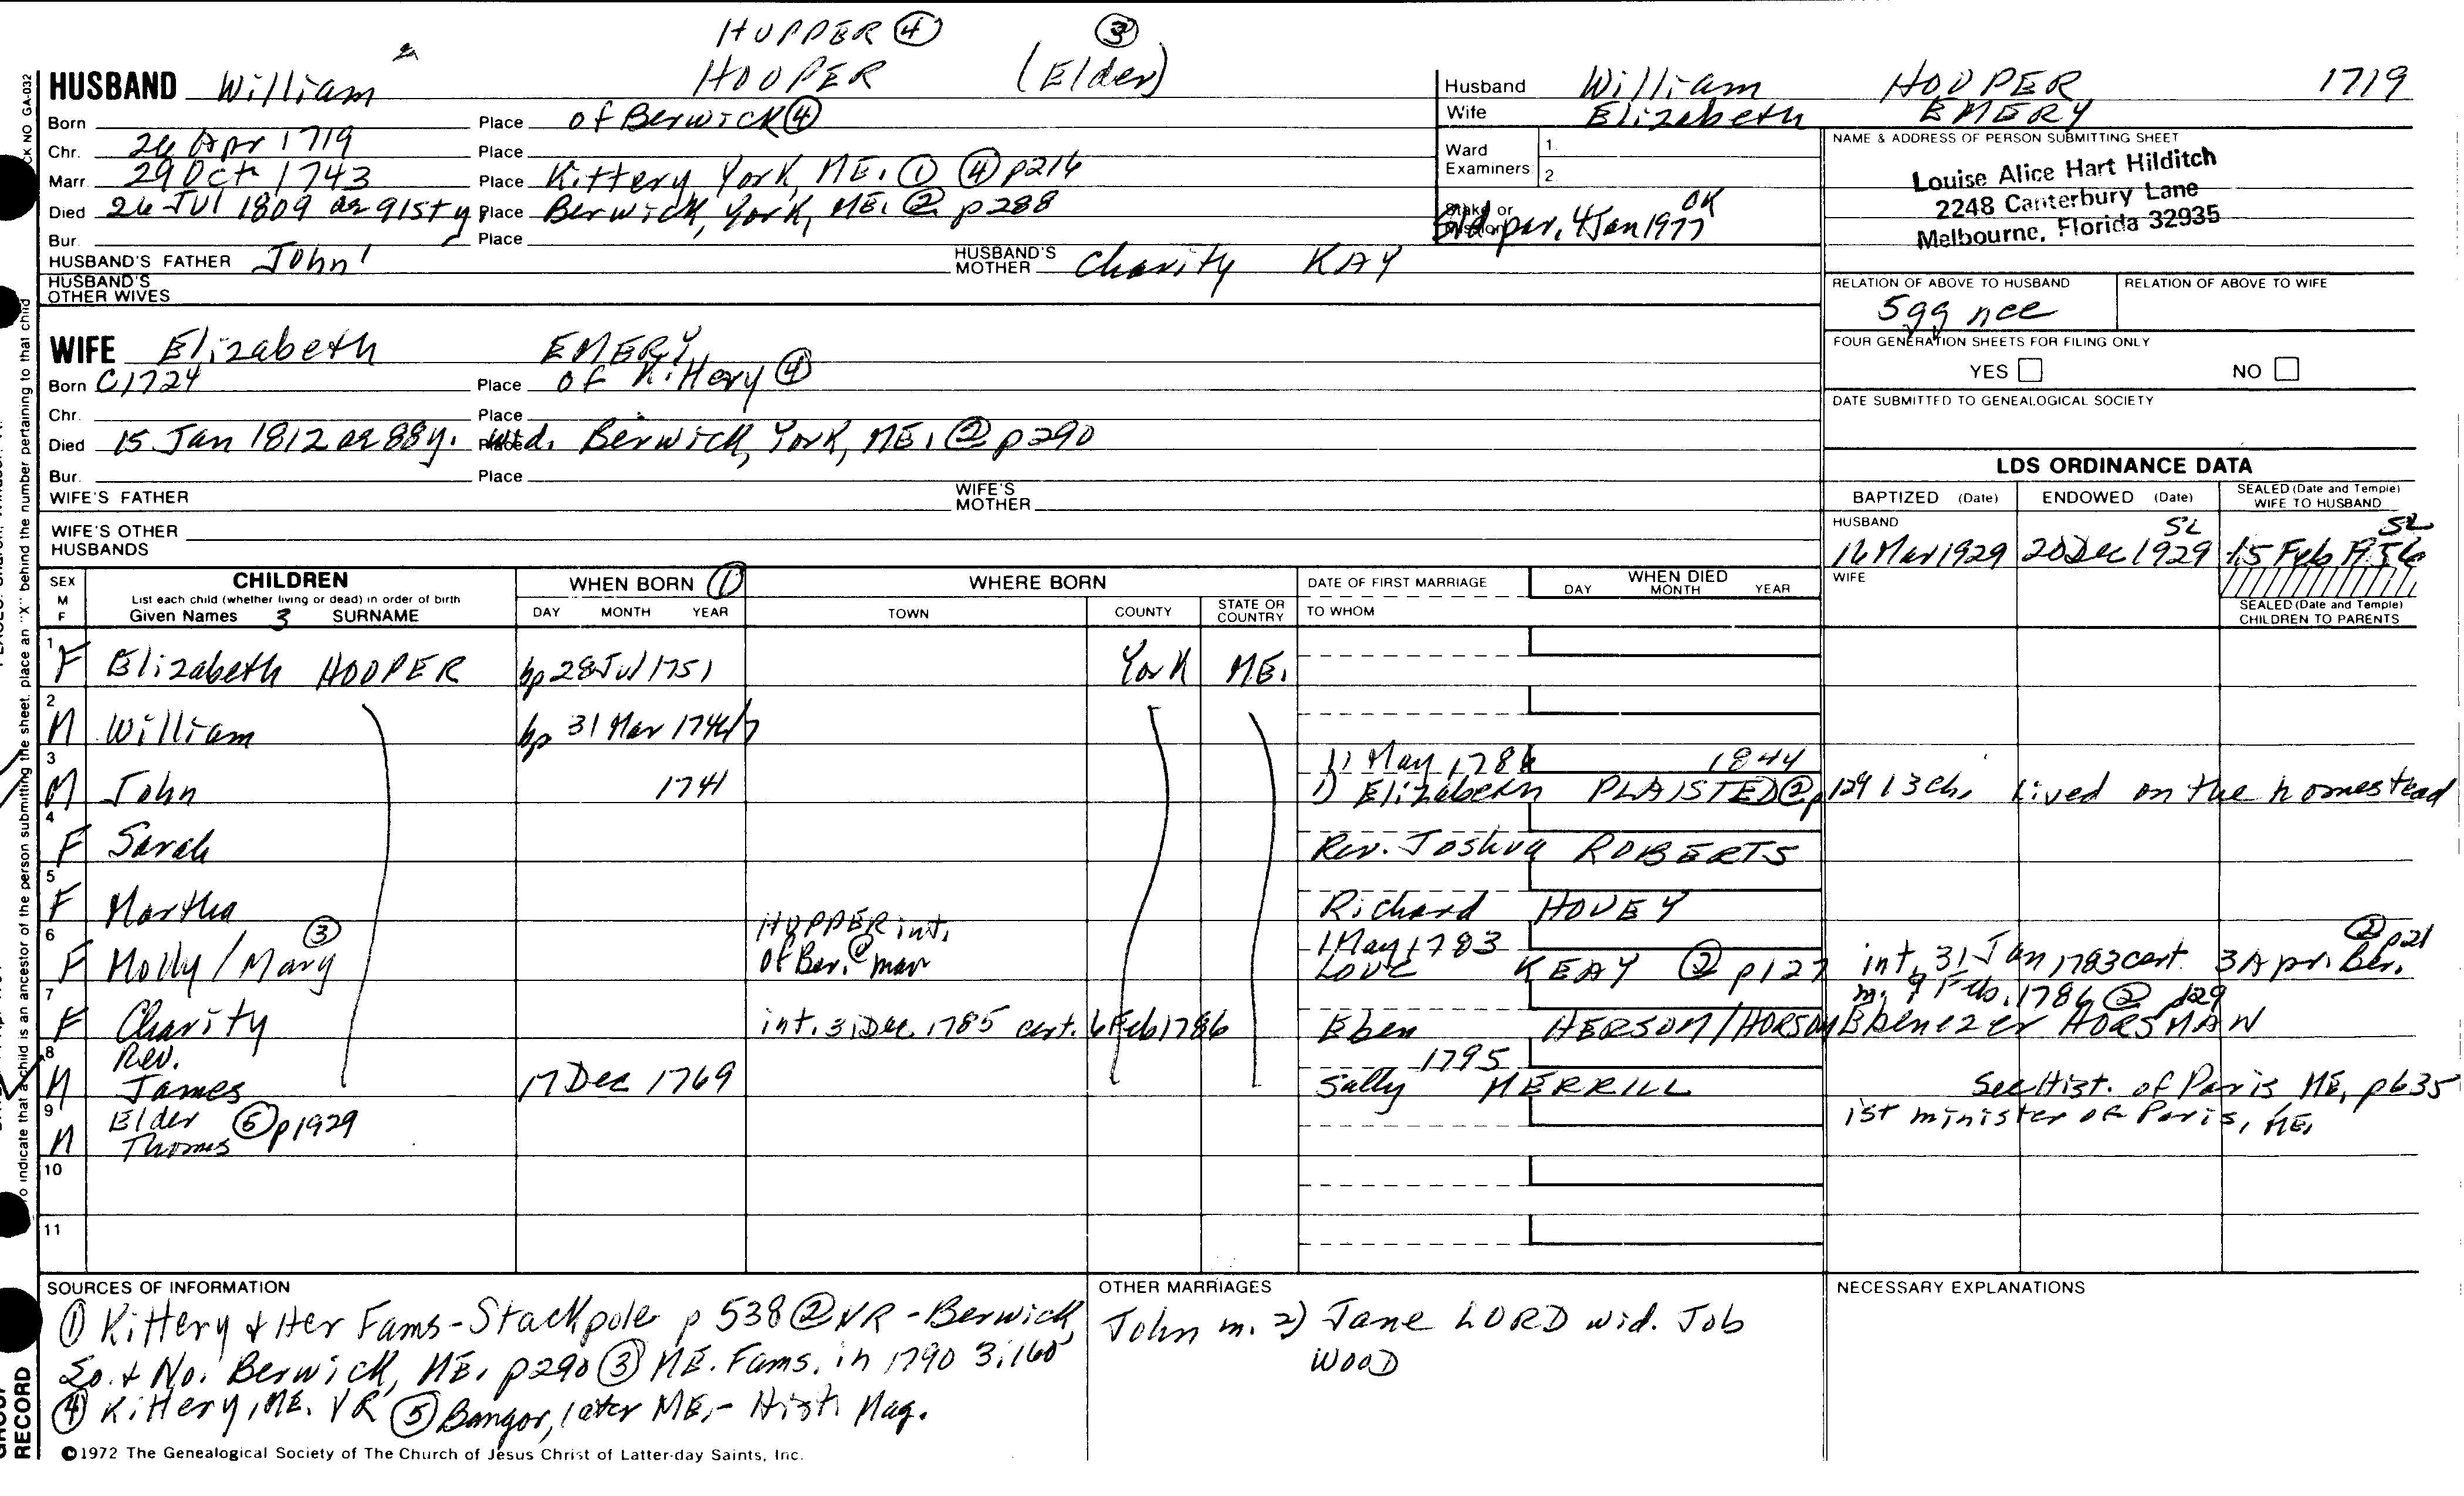 HUPPER ④ ③
HUSBAND William 2 HOOPER (Elder)
Born Place of Berwick ④
Chr. 26 Apr 1719 Place
Marr. 29 Oct 1743 Place Kittery, York, ME. ① ④ p216
Died 26 Jul 1809 ae 91st y Place Berwick, York, ME. ② p288
Bur. Place
HUSBAND'S FATHER John 1 HUSBAND'S MOTHER Charity KAY
HUSBAND'S OTHER WIVES
WIFE Elizabeth EMERY
Born C1724 Place of Kittery ④
Chr. Place
Died 15 Jan 1812 ae 88y. wid. Place Berwick, York, ME. ② p290
Bur. Place
WIFE'S FATHER WIFE'S MOTHER
WIFE'S OTHER HUSBANDS
Husband William HOOPER 1719
Wife Elizabeth EMERY
Ward Examiners 1. 2.
Stake or Mission
4 Jan 1977 OK
NAME & ADDRESS OF PERSON SUBMITTING SHEET
Louise Alice Hart Hilditch
2248 Canterbury Lane
Melbourne, Florida 32935
RELATION OF ABOVE TO HUSBAND RELATION OF ABOVE TO WIFE
5gg nce
FOUR GENERATION SHEETS FOR FILING ONLY
YES NO
DATE SUBMITTED TO GENEALOGICAL SOCIETY
LDS ORDINANCE DATA
BAPTIZED (Date) ENDOWED (Date) SEALED (Date and Temple) WIFE TO HUSBAND
HUSBAND SL SL
16 Mar 1929 20 Dec 1929 15 Feb 1956
WIFE
SEALED (Date and Temple) CHILDREN TO PARENTS
SEX M F CHILDREN WHEN BORN ① WHERE BORN DATE OF FIRST MARRIAGE WHEN DIED
List each child (whether living or dead) in order of birth
Given Names 3 SURNAME DAY MONTH YEAR TOWN COUNTY STATE OR COUNTRY TO WHOM DAY MONTH YEAR
1 F Elizabeth HOOPER bp 28 Jul 1751 York ME.
2 M William bp 31 Mar 1746/7
3 M John 1741 11 May 1786 1844
1) Elizabeth PLAISTED ② p 129 13 ch. Lived on the homestead
4 F Sarah Rev. Joshua ROBERTS
5 F Martha Richard HOVEY
6 F Molly/Mary ③ HUPPER int. of Ber. ② mar 1 May 1783 Love KEAY ② p127 int. 31 Jan 1783 cert. 3 Apr. Ber. ② p21
7 F Charity int. 31 Dec 1785 cert. 6 Feb 1786 Eben HERSOM/HORSOM Ebenezer HORSMAN m. 9 Feb. 1786 ② p29
8 M Rev. James 17 Dec 1769 1795 Sally MERRILL See Hist. of Paris ME, p635
1st minister of Paris, ME.
9 M Elder Thomas ⑤ p1929
10
11
SOURCES OF INFORMATION
① Kittery & Her Fams - Stackpole p 538 ② VR - Berwick,
So. & No. Berwick, ME. p290 ③ ME. Fams. in 1790 3:160
④ Kittery, ME. VR ⑤ Bangor, later ME. - Hist. Mag.
OTHER MARRIAGES
John m. 2) Jane LORD wid. Job
WOOD
NECESSARY EXPLANATIONS
©1972 The Genealogical Society of The Church of Jesus Christ of Latter-day Saints, Inc.
To indicate that a child is an ancestor of the person submitting the sheet, place an "X" behind the number pertaining to that child
RECORD